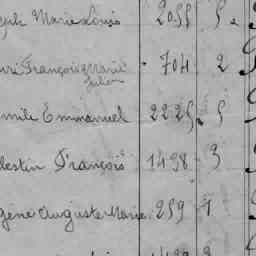 Marie Louis 2055 5
François Marie 704 2
Julien
Emmanuel 2225 5
lestin François 1498 3
gène Auguste Marie 259 1